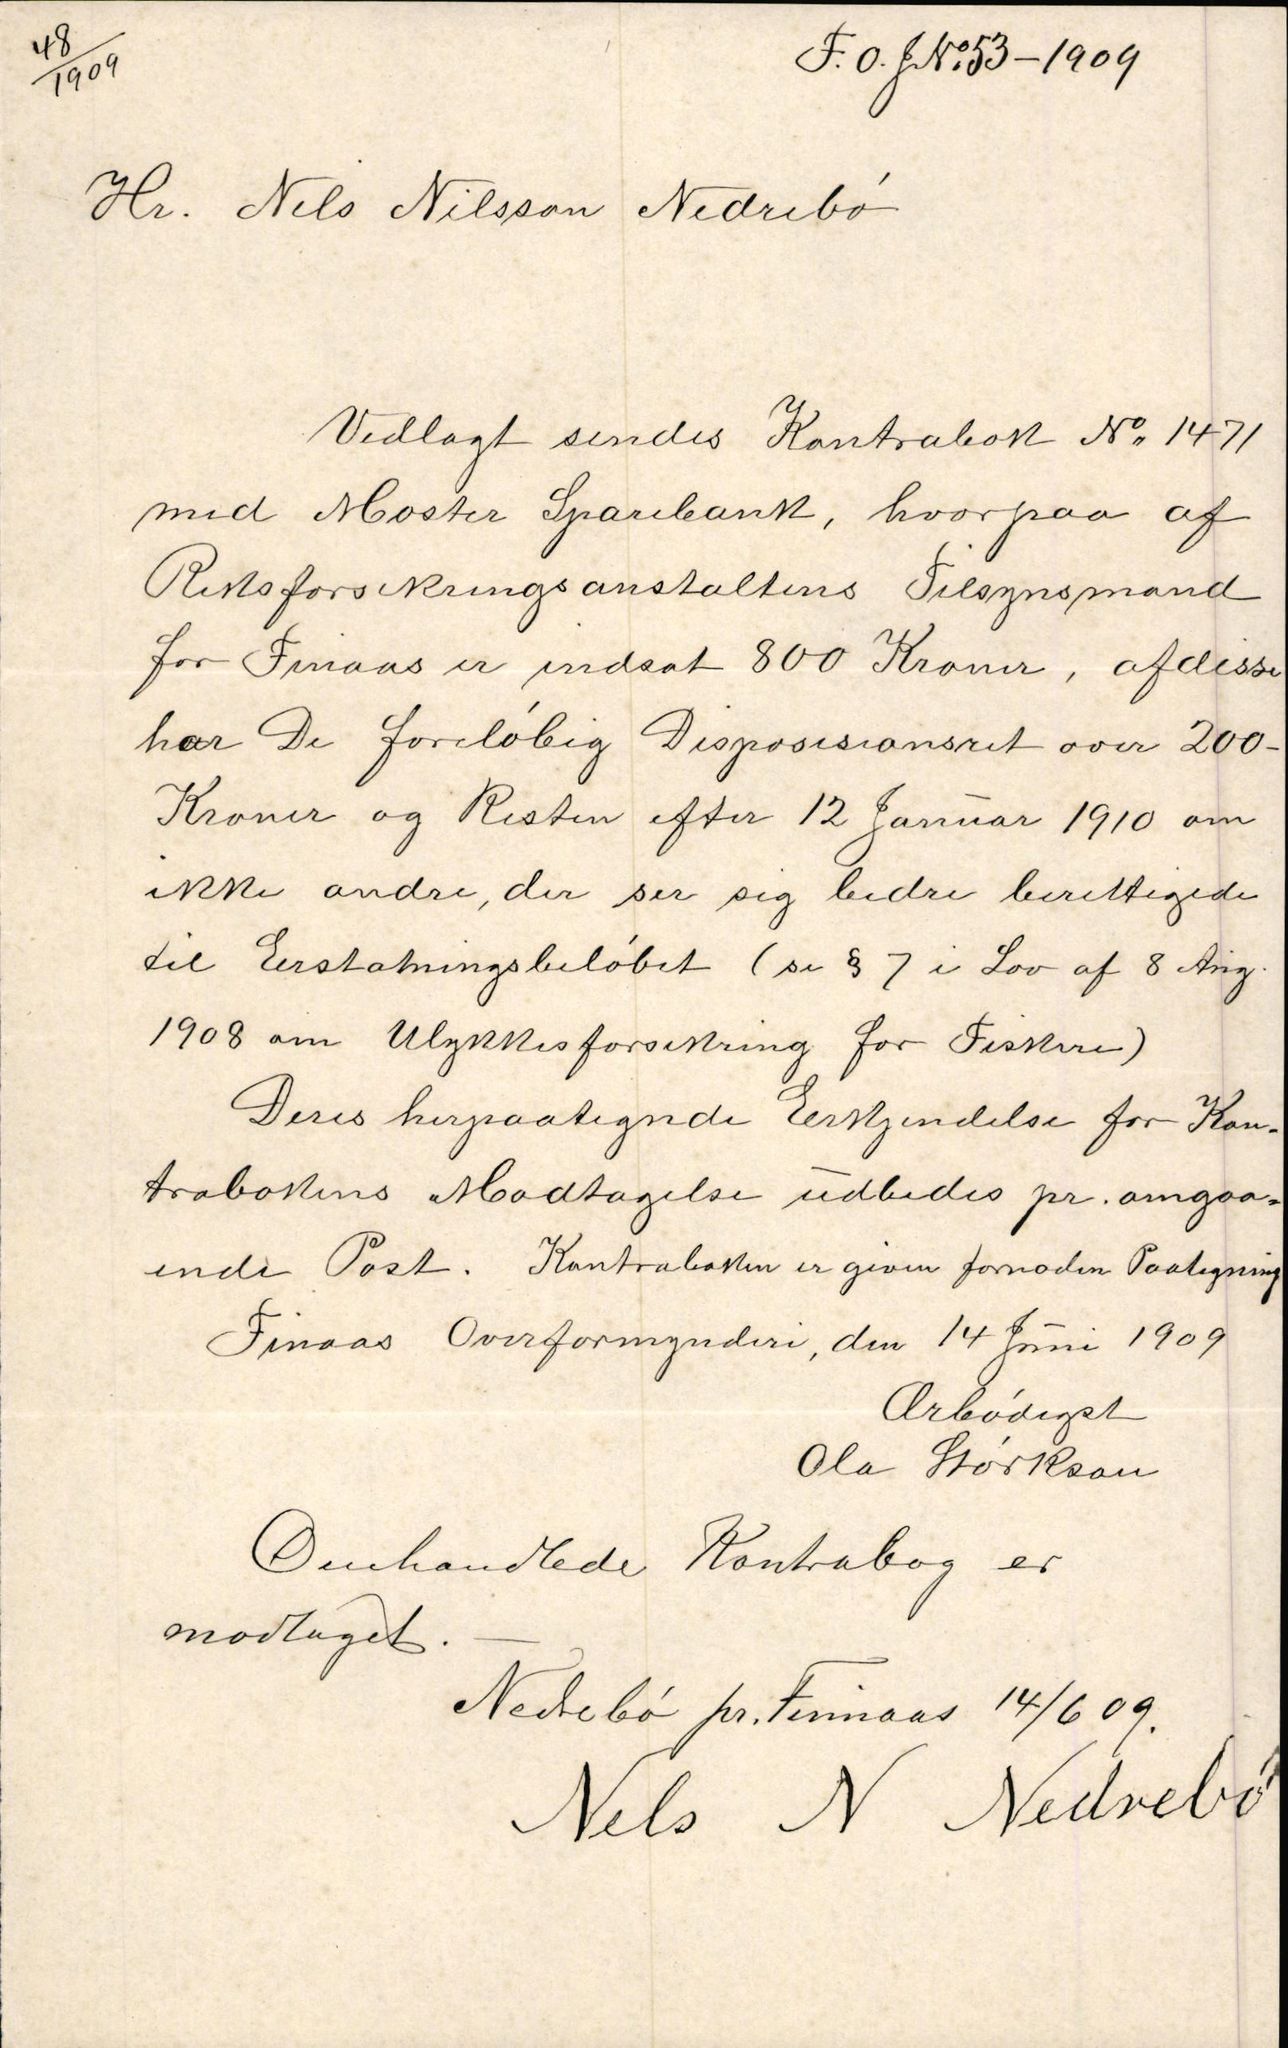 48
1909
F. O. J. No. 53 - 1909
Hr. Nels Nilsson Nedrebó
Vedlagt sendes Kontrabok No. 1471
med Moster Sparebank, hvorpaa af
Riksforsikringsanstaltens Tilsynsmand
for Finaas er indsat 800 Kroner, af disse
har De forelóbig Disposisionsret over 200-
Kroner og Resten efter 12 Januar 1910 om
ikke andre, der ser sig bedre berettigede
til Eerstatningsbelóbet (se § 7 i Lov af 8 Aug.
1908 om Ulykkesforsikring for Fiskere)
Deres herpaategnde Eerkjendelse for Kon-
trabokens Modtagelse udbedes pr. omgaa-
ende Post. Kontraboken er given fornoden Paategning
Finaas Overformynderi, den 14 Juni 1909
Ærbódigst
Ola Stórkson
Omhandlede Kontrabog er
modtaget. —
Nedrebó pr. Finnaas 14/6 09.
Nels N Nedrebó